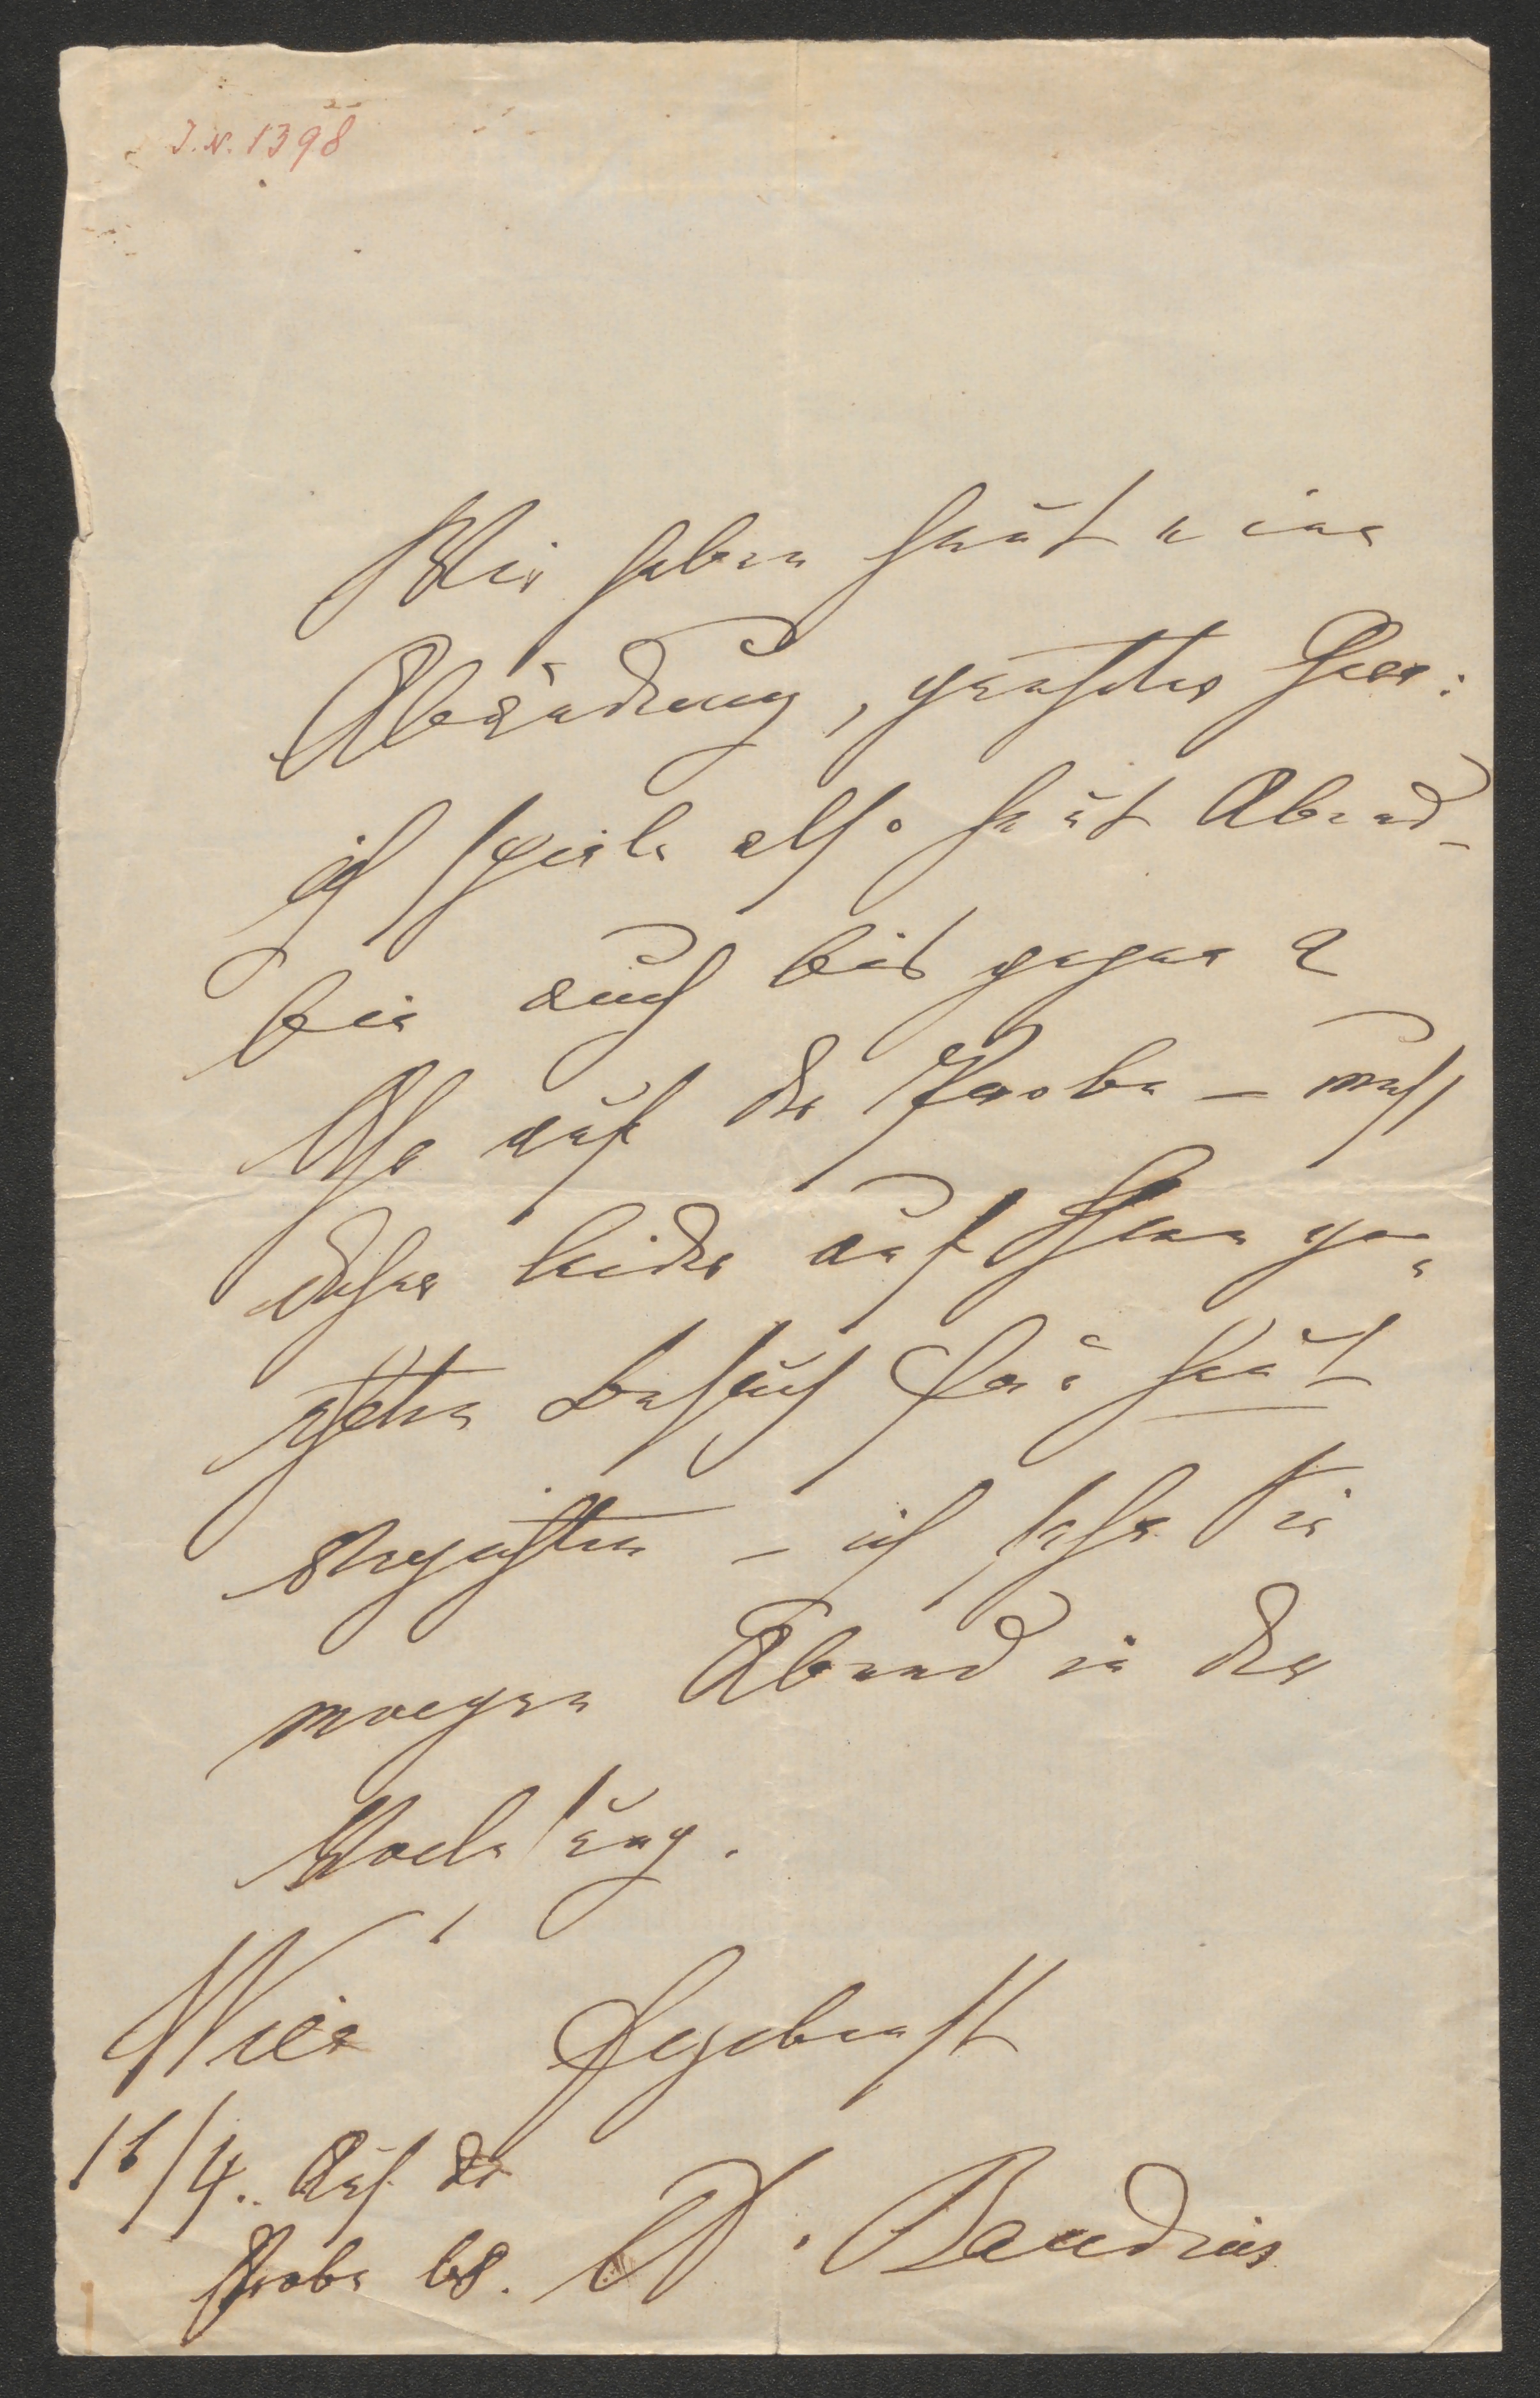 I.N. 1398
Wir haben heut eine
Abänderung, geehrter Herr:
ich spiele also heut Abend –
bin auch bis gegen 2
Uhr auf der Probe – muß
daher leider auf Ihren gü-
gsten Besuch für heut
verzichten – ich sehe Sie
morgen Abend in der
Vorlesung.
Wien Ergebenst
16/4. Auf der
Probe 68. A. Baudius